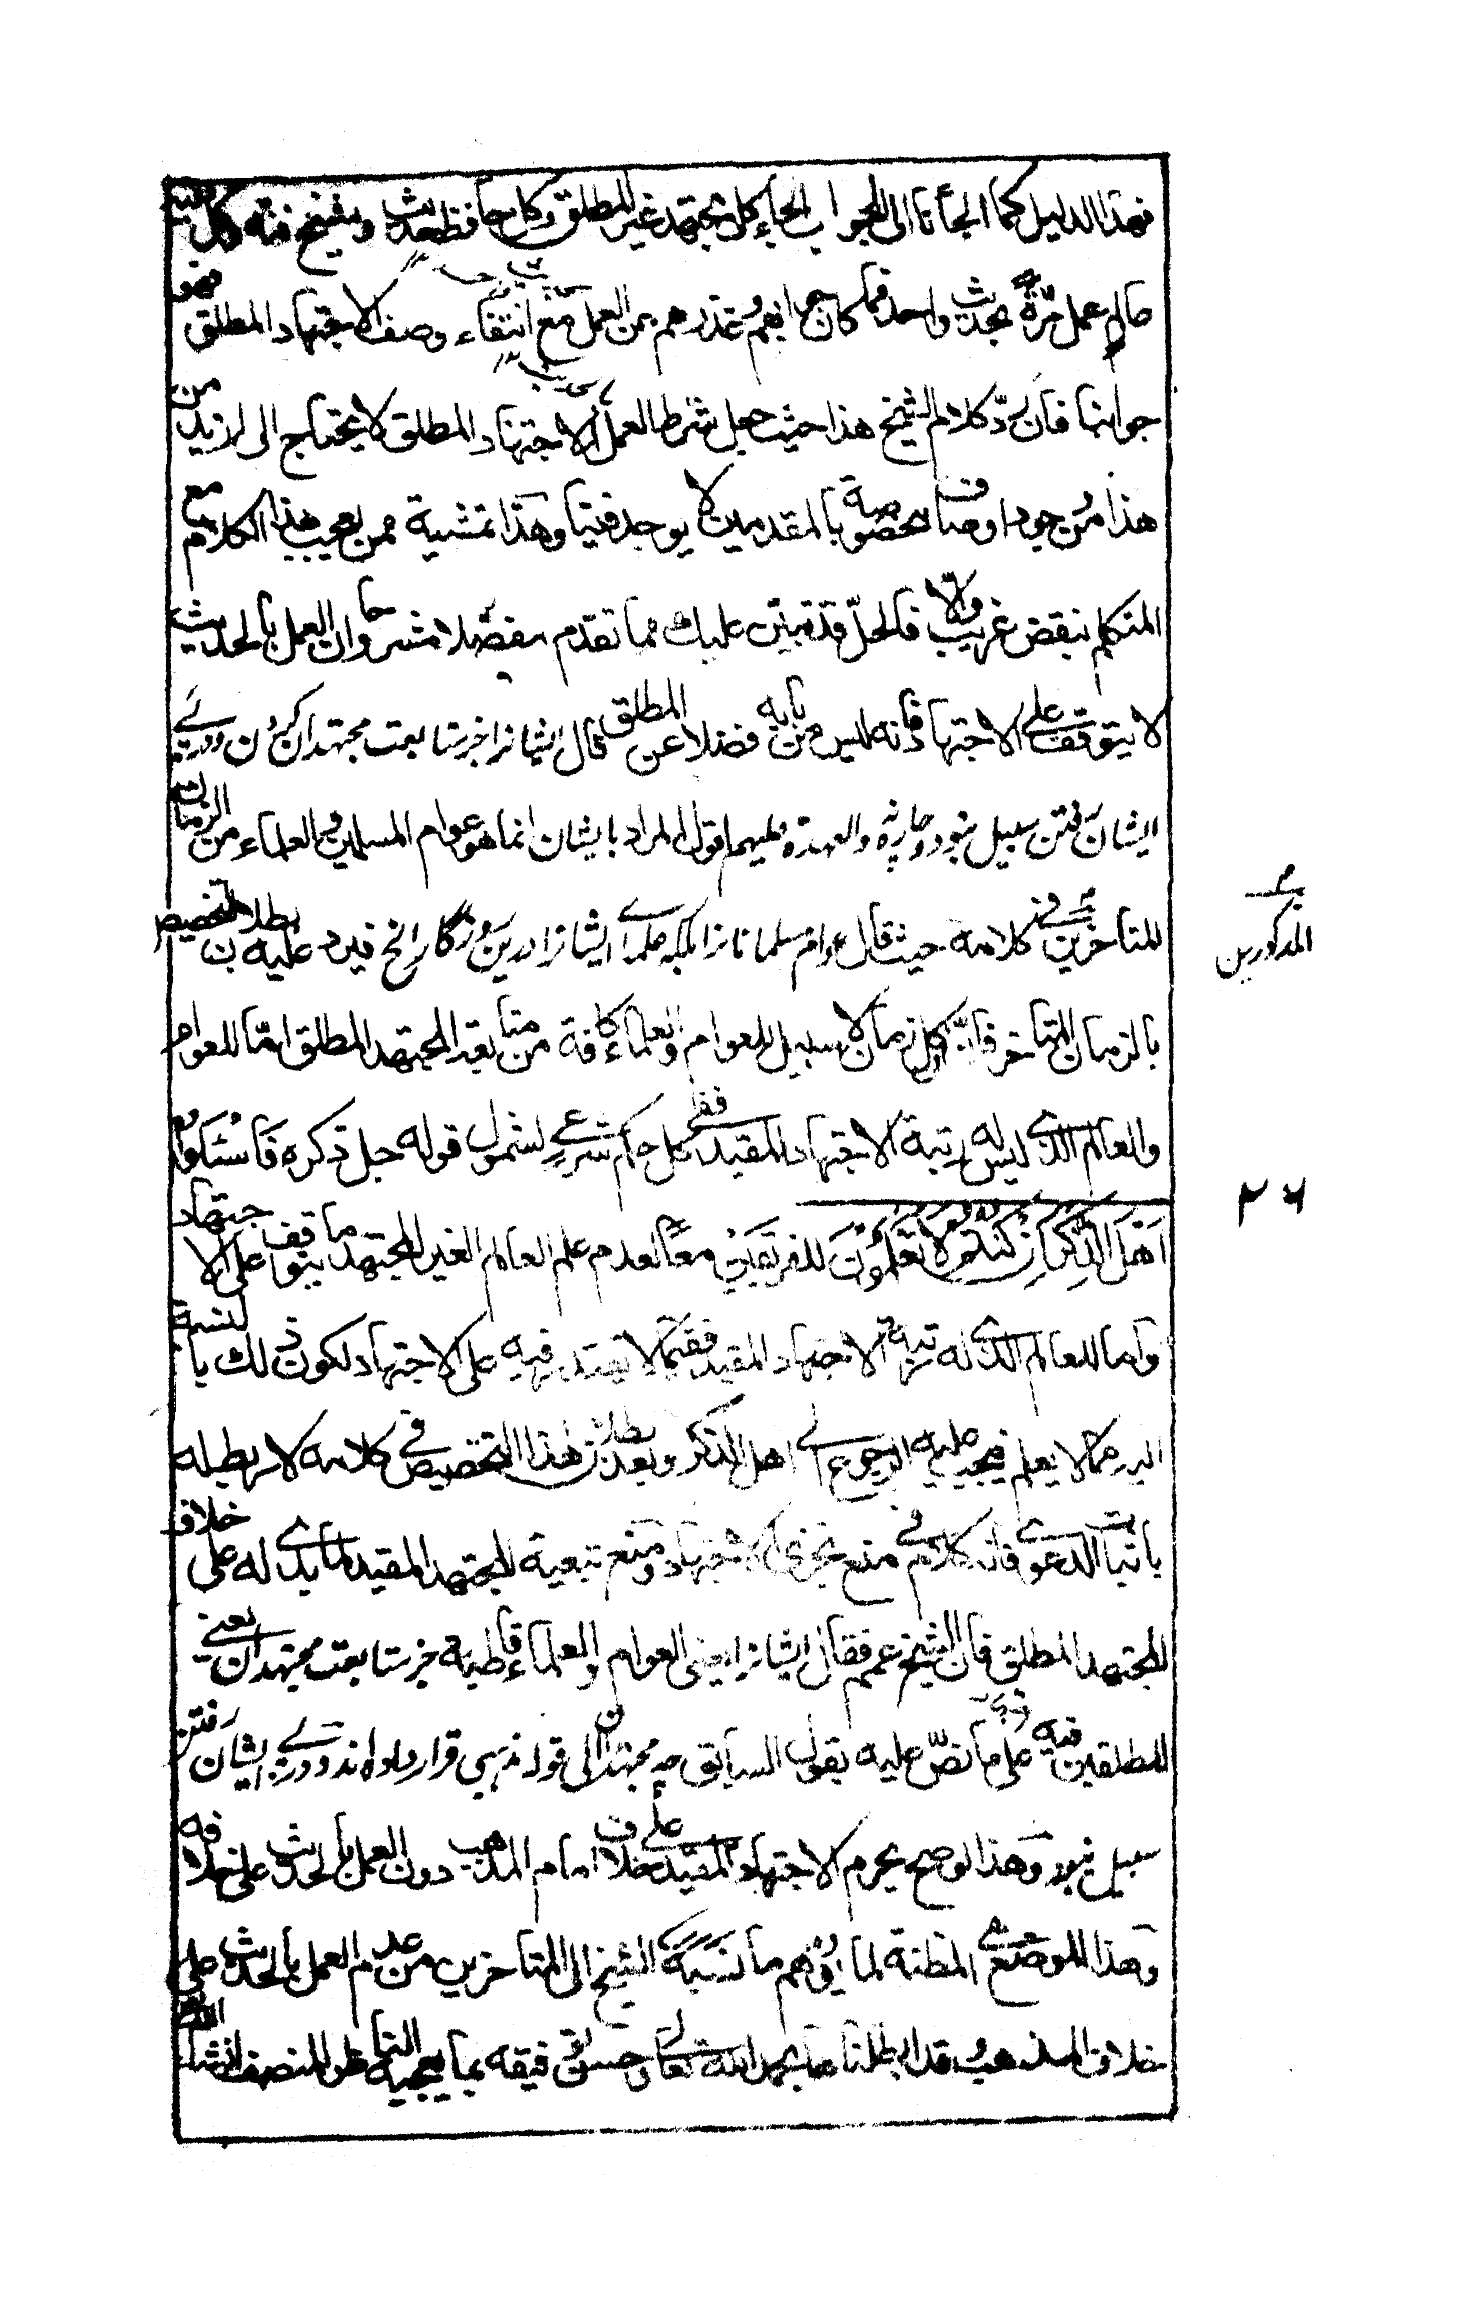 فهذا الدليل كما الجأنا الى الجواب الجاء كل مجتهد غير المطلق وكل حافظ حديث وشيخ فقه وكل
عالم عمل مرة بحديث واحد فما كان جوابهم وعذرهم من العمل مع انتفاء وصف الاجتهاد المطلق فهو
جوابنا فان رد كلام الشيخ هذا حيث جعل شرط العمل الاجتهاد المطلق لا يحتاج الى ازيد من
هذا من وجود اوصاف مخصوصة بالمقدمين لا يوجد فينا وهذا تمشية ممن يعجب هذا الكلام مع
المتكلم بنقض غريب والا فالحل قد تبين عليك مما تقدم مفصلا مشروحا وان العمل بالحديث
لا يتوقف على الاجتهاد فانه ليس من بابه فضلا عن المطلق قال ايشانرا جز متابعت مجتهدان كردن ودر پي
ايشان رفتن سبيل نبود وچاره والعهدة عليهما اقول المراد بايشان انما هو عوام المسلمين والعلماء من الزمان
للمتاخرين في كلامه حيث قال عوام مسلمانانرا بلكه علماى ايشانرا درين روزگار الخ فيرد عليه بطلان التخصيص
بالزمان المتاخر فان كل زمان لا سبيل للعوام والعلماء كافة من متابعة المجتهد المطلق اما للعوام
والعالم الذى ليس له رتبة الاجتهاد المقيد ففى كل حكم شرعي لشمول قوله جل ذكره فاسئلوا
اهل الذكر ان كنتم لا تعلمون للفريقين معا لعدم علم العالم الغير المجتهد ما يتوقف على الاجتهاد
واما للعالم الذى له رتبة الاجتهاد المقيد ففيما لا يقتدر فيه على الاجتهاد لكون ذلك بالنسبة
اليه مما لا يعلم فيجب عليه الرجوع الى اهل الذكر وبعد بطلان هذا التخصيص في كلامه لا سبيل له
باثبات الدعوى فانه كلام في منع تجزي الاجتهاد ومنع تبعية المجتهد المقيد لما بدى له على خلاف
المجتهد المطلق فان الشيخ عمم فقال ايشانرا يعنى العوام والعلماء قاطبة جز متابعت مجتهدان يعني
المطلقين فيه على ما نص عليه بقول السابق مجتهدان الى قوله مذهبي قرار داده اند ودر پي ايشان رفتن
سبيل نبود وهذا توضح يحرم الاجتهاد المقيد على خلاف امام المذهب دون العمل بالحديث على خلافه
وهذا الموضع المظنة لما يوهم ما نسبة الشيخ الى المتاخرين من عدم العمل بالحديث على
خلاف المذهب قد ابطلنا ما بحمد الله تعالى وحسن توفيقه بما يعجب الناظر المنصف انشاء الله
المذكورين
٢٦